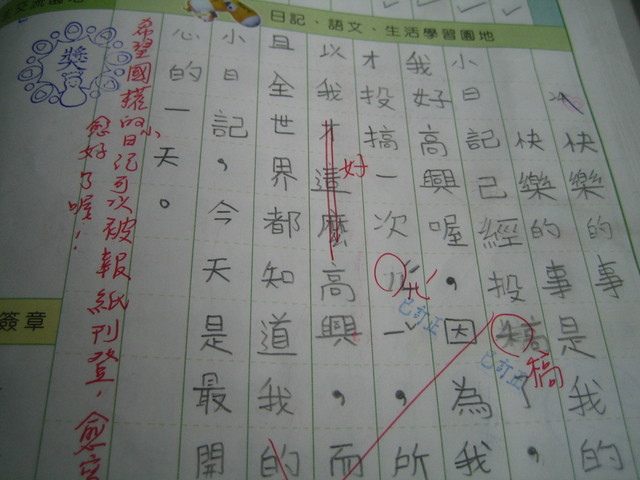 日記、語文、生活學習園地
快樂的事是我的
快樂的事
小日記己經投稿了，
稿
已訂正
我好高興喔，因為我
才投搞一次
一，所
已訂正
以我才這麼高興，而
好
且全世界都知道我的
小日記，今天是最開
心的一天。
獎
希望國權的小日記可以被報紙刊登，愈
愈好了喔！
簽章